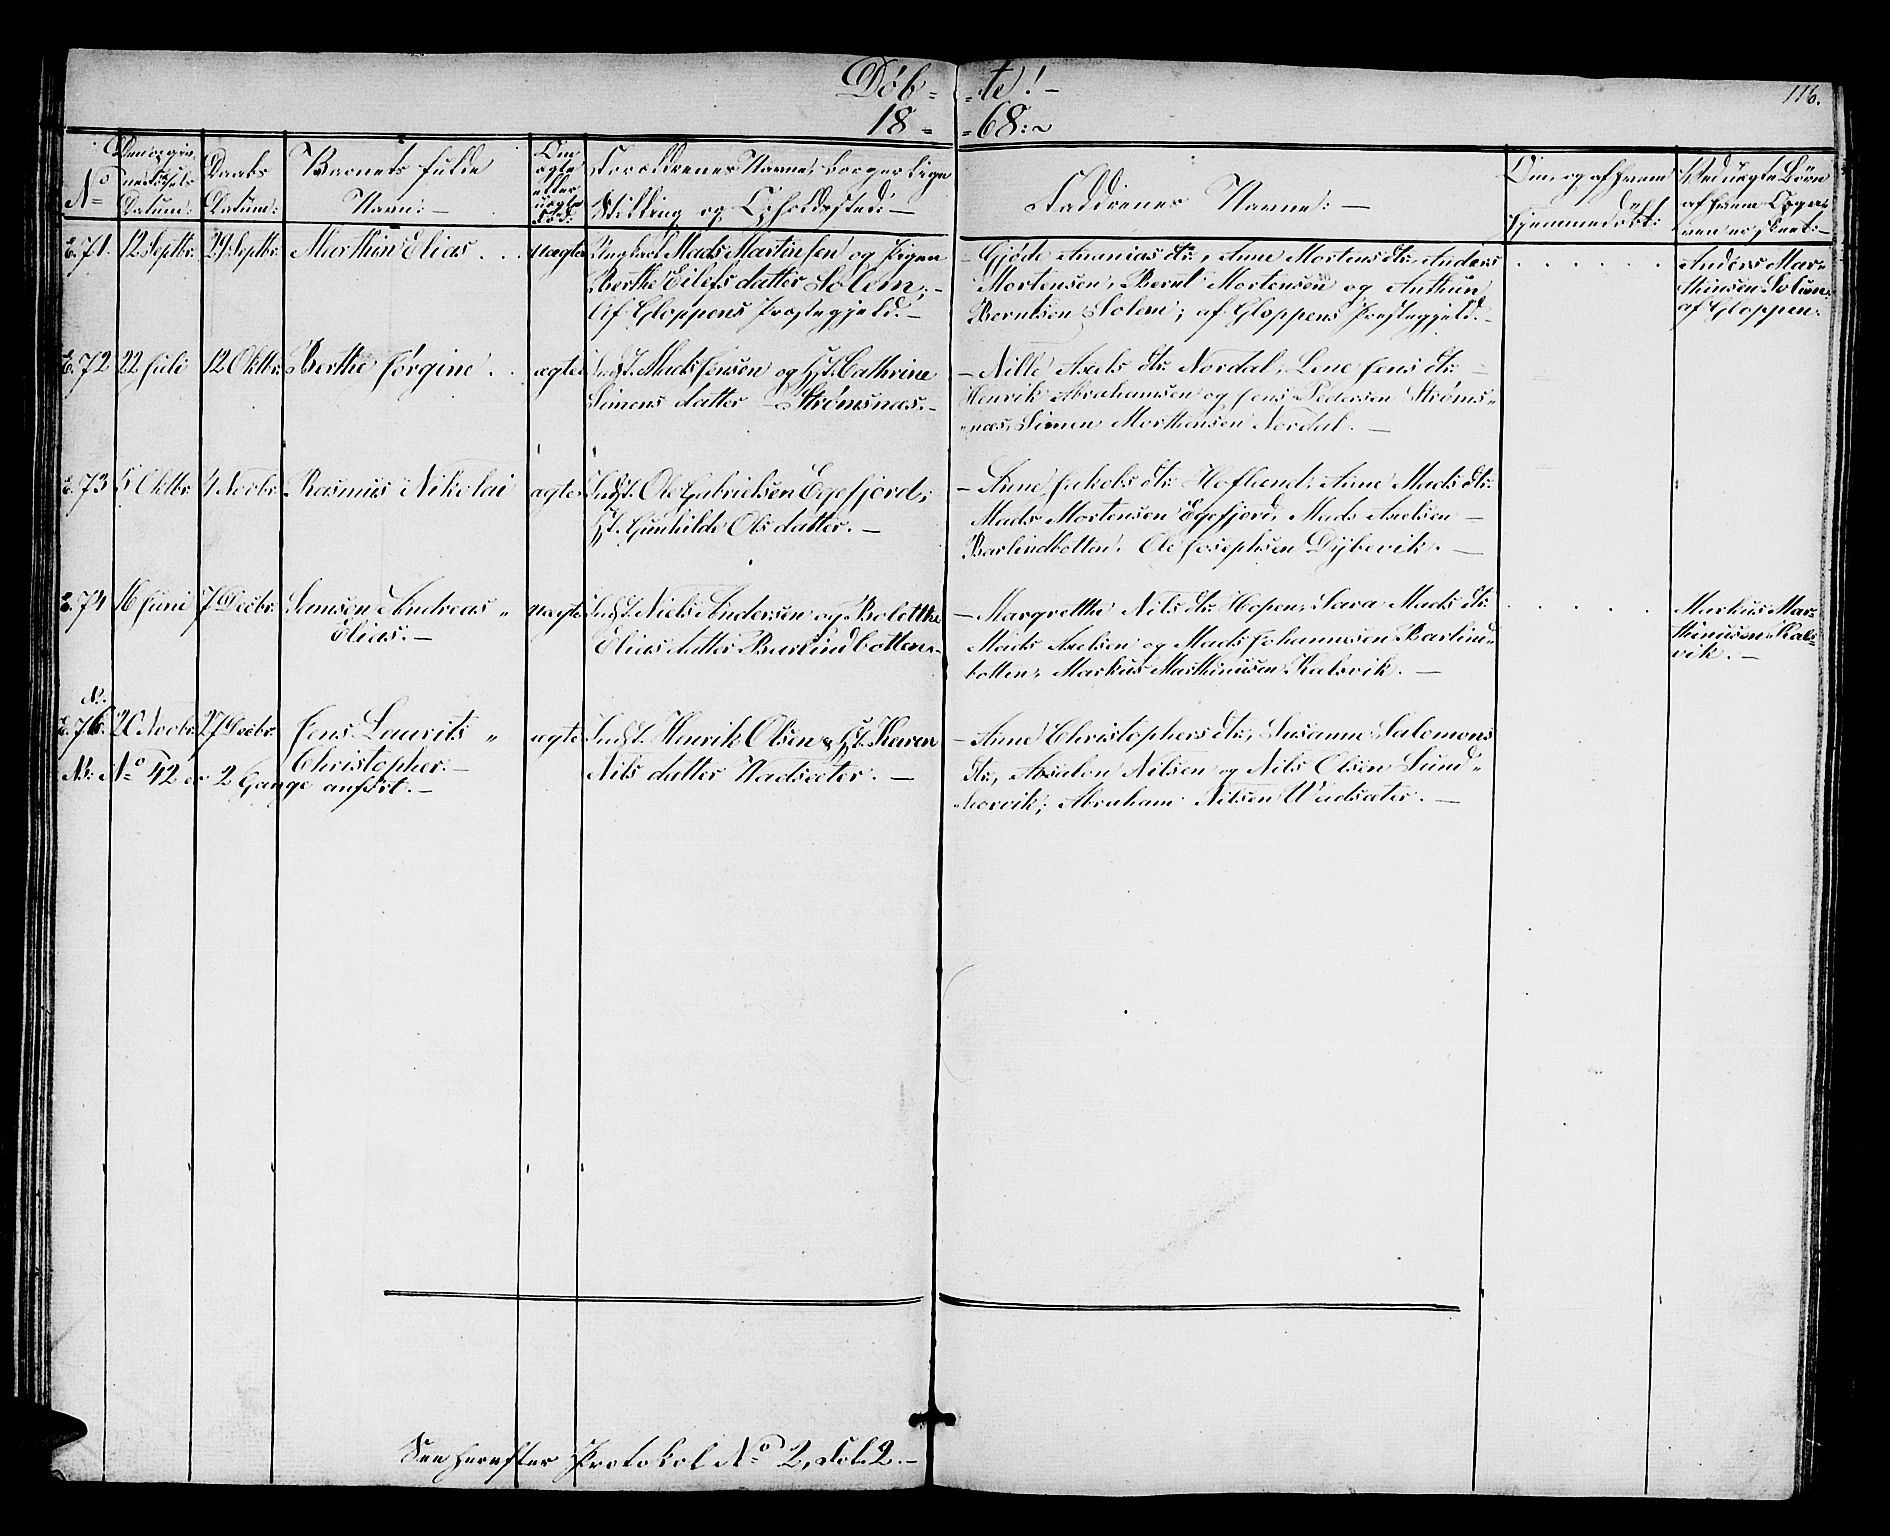 Døb- -te!-
116.
18- -68:~
No
Den og gien
nedskels
Datum:
Daabs
Datum:
Barnets fulde
Navn:-
Om
ægte
eller
uægte
Fød:
Forældrenes Navne, borgerlige
Stilling og Opholdssted:-
Faddrenes Navne:-
Om, og af hvem
hjemmedøbt:
Ved uægte Børn
af hvem Opga-
ven er skeet:-
E. 71. 12 Septbr. 29 Septbr. Marthin Elias . . uægte Ungkarl Mads Martinsen og Pigen
Berthe Eilefs datter Solem.-
Af Gloppens Prestegjeld.-
- Gjøde Ananias dtr., Anne Mortens dtr. Anders
Mortensen, Bernt Mortensen og Anthun
Berntsen Solem; af Gloppens Prestegjeld.-
Anders Mar-
thinsen Solem
af Gloppen.
E. 72 22 Juli 12 Oktbr. Berthe Jørgine . . ægte Indst. Mads Jensen og Hst. Cathrine
Simens datter Strømsnæs.-
- Nille Axels dtr. Nordal, Lene Jens dtr. -
Henrik Abrahamsen og Jens Pedersen Strøms-
næs, Simen Morthensen Nordal. -
E. 73 5 Oktbr. 1 Novbr. Rasmus Nikolai ægte Indst. Ole Gabrielsen Egefjord,
Hst. Gunhilde Ols datter. -
- Anne Jakobs dtr. Hofland, Anne Mads dtr.
Mads Mortensen Egefjord, Mads Axelsen -
Barlindbotten, Ole Josephsen Dybevik. -
E. 74 16 Juni 7 Decbr. Samson Andreas „
Elias. -
uægte Indst. Niels Andersen og Bolethe
Elias datter Barlindbotten.
- Margrethe Nils dtr. Hopen, Sara Mads dtr.
Mads Axelsen og Mads Johannesen Barlind-
botten, Markus Marthinusen Kalsvik. -
Markus Mar-
thinusen Kals-
vik. -
N.
E. 76. 20 Novbr. 27 Decbr. Jens Laurits „
Christopher. -
ægte Indst. Henrik Olsen & Hst. Karen
Nils datter Vadsæter. -
- Anne Christophers dtr., Susanne Salomons
dtr., Absalon Nilsen og Nils Olsen Sund-
norvik, Abraham Nilsen Vadsæter. -
N: No 42 er 2 Gange anført. -
See herefter Protokol No 2, Fol. 2. -